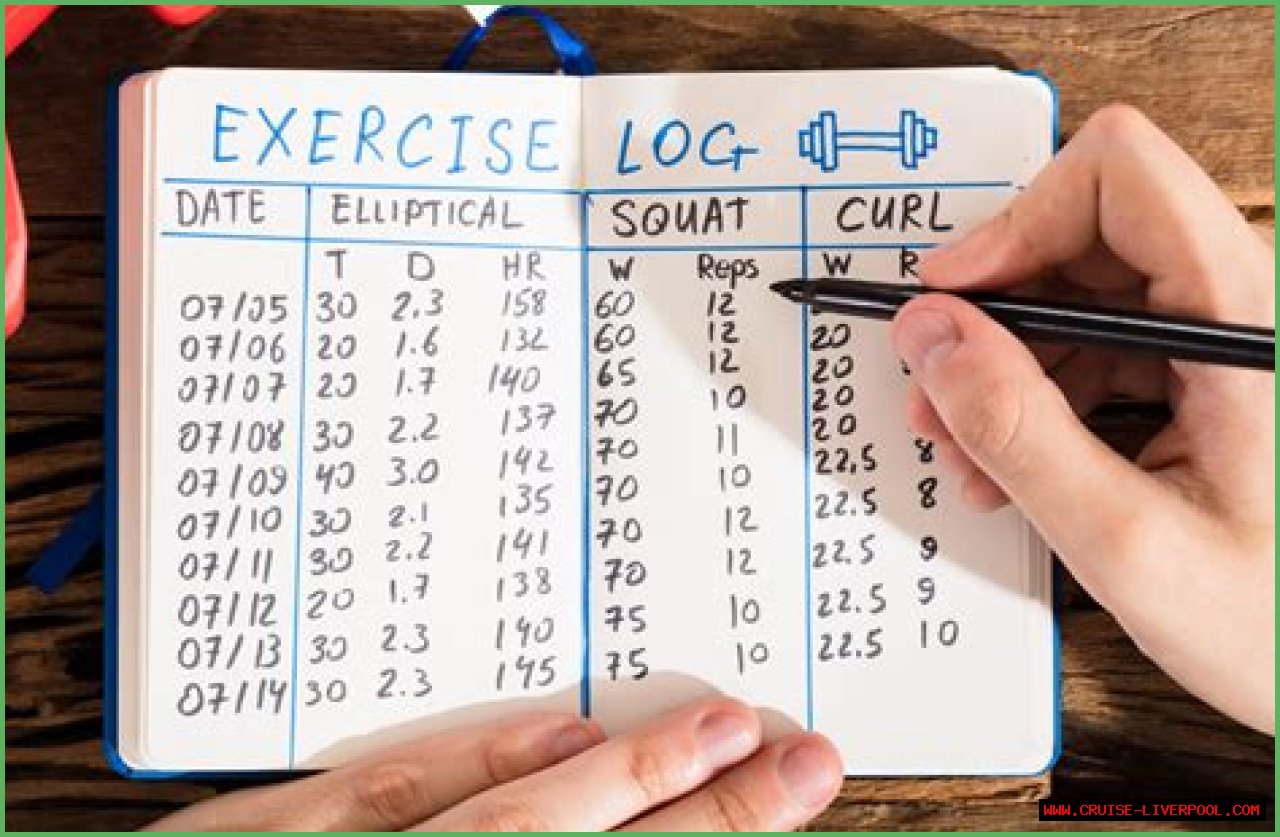 EXERCISE LOG
DATE ELLIPTICAL SQUAT CURL
T D HR W Reps W R
07/05 30 2.3 158 60 12
07/06 20 1.6 132 60 12 20
07/07 20 1.7 140 65 12 20
07/08 30 2.2 137 70 10 20
07/09 40 3.0 142 70 11 20
07/10 30 2.1 135 70 10 22,5 8
07/11 30 2.2 141 70 12 22.5 8
07/12 20 1.7 138 70 12 22.5 9
07/13 30 2.3 140 75 10 22.5 9
07/14 30 2.3 145 75 10 22.5 10
WWW.CRUISE-LIVERPOOL.COM